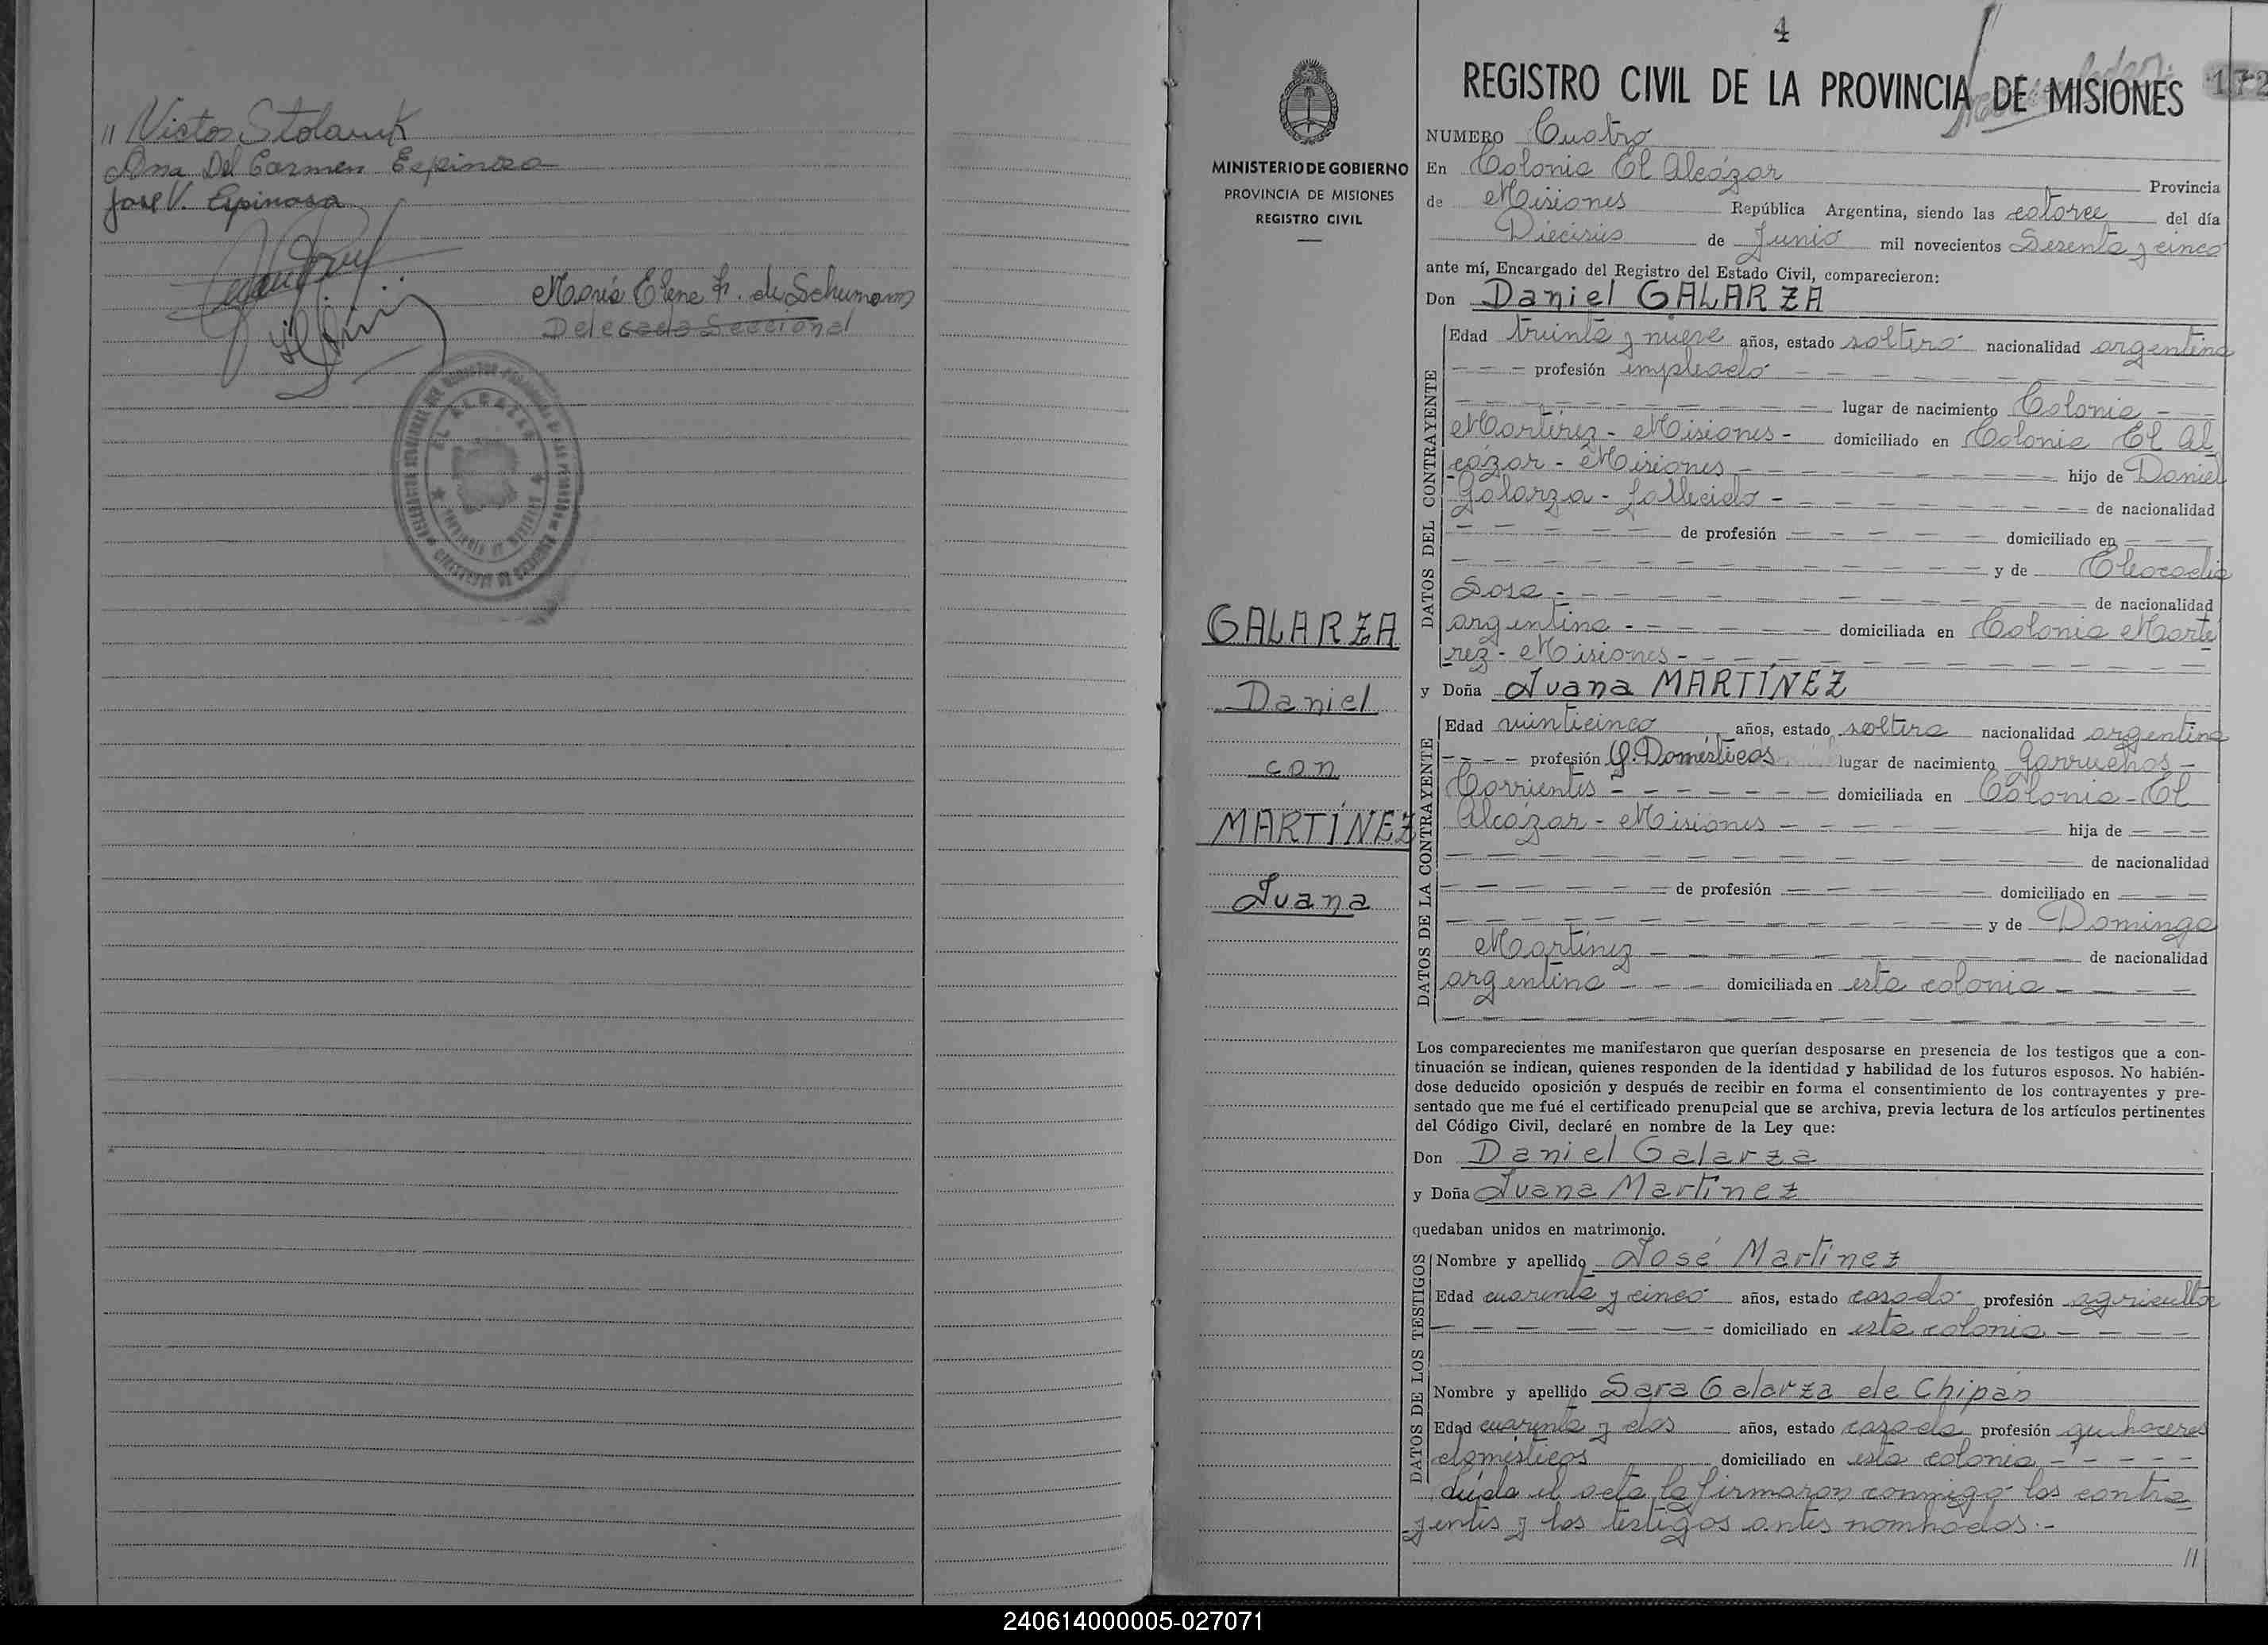 // Victor Stolaruk
Ana Del Carmen Espinosa
José V. Espinosa
María Elena F. de Schumann
Delegada Seccional
EL ALCAZAR
4
172
REGISTRO CIVIL DE LA PROVINCIA DE MISIONES
MINISTERIO DE GOBIERNO
PROVINCIA DE MISIONES
REGISTRO CIVIL
GALARZA
Daniel
con
MARTÍNEZ
Juana
NUMERO Cuatro
En Colonia El Alcázar Provincia
de Misiones República Argentina, siendo las catorce del día
Dieciséis de Junio mil novecientos Sesenta y cinco
ante mí, Encargado del Registro del Estado Civil, comparecieron:
Don Daniel GALARZA
DATOS DEL CONTRAYENTE
Edad treinta y nueve años, estado soltero nacionalidad argentina
- - - profesión empleado - - - - - - - -
- - - - - - - - lugar de nacimiento Colonia - -
Martirez - Misiones - domiciliado en Colonia El Al
cázar - Misiones - - - - - - - hijo de Daniel
Galarza - fallecido - - - - - - - - de nacionalidad
- - - - - - de profesión - - - - - domiciliado en - - -
- - - - - - - - - - - y de Eleocadia
Sosa - - - - - - - - - - de nacionalidad
argentina - - - - - - domiciliada en Colonia Marti
rez - Misiones - - - - - - - - - - -
y Doña Juana MARTÍNEZ
DATOS DE LA CONTRAYENTE
Edad veinticinco años, estado soltera nacionalidad argentina
- - - - profesión Q. Domésticos lugar de nacimiento Garruchos -
Corrientes - - - - - - - domiciliada en Colonia - El
Alcázar - Misiones - - - - - - - hija de - - -
- - - - - - - - - - - - de nacionalidad
- - - - - - de profesión - - - - - domiciliado en - - -
- - - - - - - - - - - y de Dominga
Martínez - - - - - - - - - de nacionalidad
argentina - - - domiciliada en esta colonia - - - -
- - - - - - - - - - - - - - - -
Los comparecientes me manifestaron que querían desposarse en presencia de los testigos que a con-
tinuación se indican, quienes responden de la identidad y habilidad de los futuros esposos. No habién-
dose deducido oposición y después de recibir en forma el consentimiento de los contrayentes y pre-
sentado que me fué el certificado prenupcial que se archiva, previa lectura de los artículos pertinentes
del Código Civil, declaré en nombre de la Ley que:
Don Daniel Galarza
y Doña Juana Martínez
quedaban unidos en matrimonio.
DATOS DE LOS TESTIGOS
Nombre y apellido José Martínez
Edad cuarenta y cinco años, estado casado profesión agricultor
- - - - - - - domiciliado en esta colonia - - - -
Nombre y apellido Sara Galarza de Chipán
Edad cuarenta y dos años, estado casada profesión quehaceres
domésticos domiciliado en esta colonia - - - - -
Leída el acta la firmaron conmigo los contra
yentes y los testigos antes nombrados. -
//
240614000005-027071